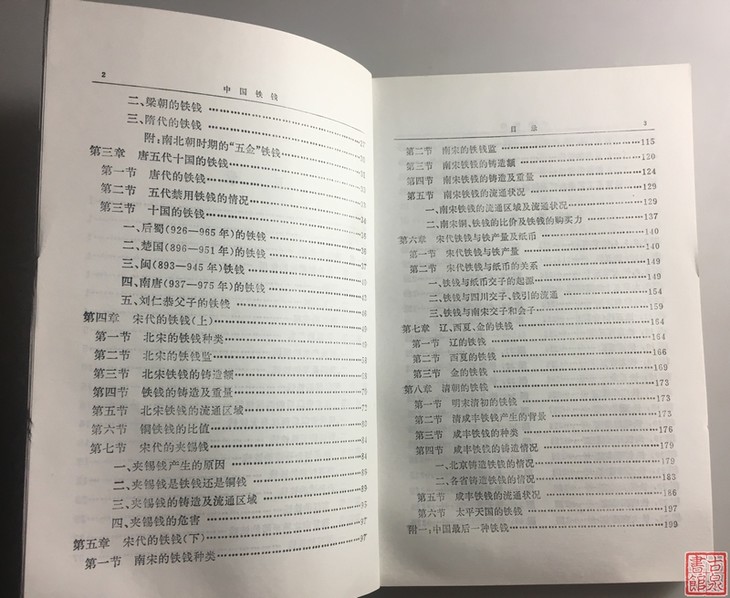 2
中国铁钱
二、梁朝的铁钱
三、隋代的铁钱
附:南北朝时期的“五金”铁钱
第三章 唐五代十国的铁钱
第一节 唐代的铁钱
第二节 五代禁用铁钱的情况
第三节 十国的铁钱
一、后蜀(926—965年)的铁钱
二、楚国(896—951年)的铁钱
三、闽(893—945年)铁钱
四、南唐(937—975年)的铁钱
五、刘仁恭父子的铁钱
第四章 宋代的铁钱(上)
第一节 北宋的铁钱种类
第二节 北宋的铁钱监
第三节 北宋铁钱的铸造额
第四节 铁钱的铸造及重量
第五节 北宋铁钱的流通区域
第六节 铜铁钱的比值
第七节 宋代的夹锡钱
一、夹锡钱产生的原因
二、夹锡钱是铁钱还是铜钱
三、夹锡钱的铸造及流通区域
四、夹锡钱的危害
第五章 宋代的铁钱(下) 97
第一节 南宋的铁钱种类 97
目录
3
第二节 南宋的铁钱监 115
第三节 南宋铁钱的铸造额 120
第四节 南宋铁钱的铸造及重量 124
第五节 南宋铁钱的流通状况 129
一、南宋铁钱的流通区域及流通状况 129
二、南宋铜、铁钱的比价及铁钱的购买力 137
第六章 宋代铁钱与铁产量及纸币 140
第一节 宋代铁钱与铁产量 140
第二节 宋代铁钱与纸币的关系 149
一、铁钱与纸币交子的起源 149
二、铁钱与四川交子、钱引的流通 154
三、铁钱与南宋交子和会子 159
第七章 辽、西夏、金的铁钱 164
第一节 辽的铁钱 164
第二节 西夏的铁钱 166
第三节 金的铁钱 169
第八章 清朝的铁钱 173
第一节 明末清初的铁钱 173
第二节 清咸丰铁钱产生的背景 173
第三节 咸丰铁钱的种类 176
第四节 咸丰铁钱的铸造情况 179
一、北京铸造铁钱的情况 179
二、各省铸造铁钱的情况 183
第五节 咸丰铁钱的流通状况 186
第六节 太平天国的铁钱 197
附一:中国最后一种铁钱 199
古泉書館